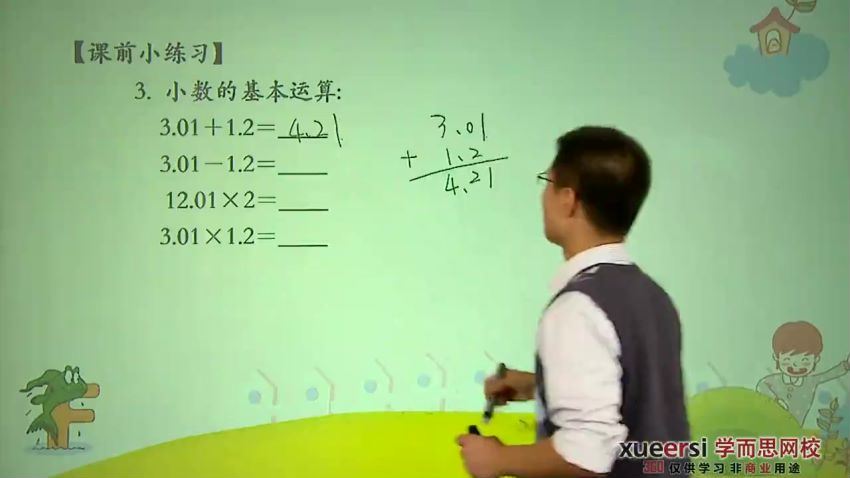 【课前小练习】
3. 小数的基本运算:
3.01+1.2=4.21
3.01-1.2=
12.01×2=
3.01×1.2=
3.01
+ 1.2
4.21
xueersi 学而思网校
360 仅供学习 非商业用途